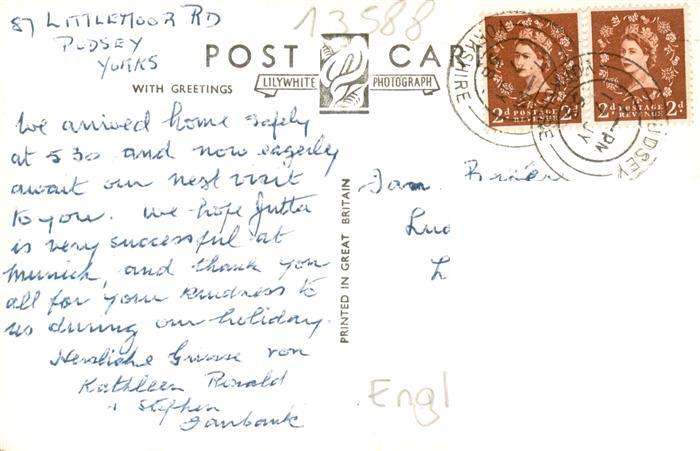 87 LITTLEMOOR RD
PUDSEY
YORKS
13588
POST CAR
LILYWHITE PHOTOGRAPH
WITH GREETINGS
2d POSTAGE REVENUE 2d
2d POSTAGE REVENUE 2d
PUDSEY
We arrived home safely
at 530 and now eagerly
await our next visit
to you. We hope Jutta
is very successful at
Munich, and thank you
all for your kindness to
us during our holiday.
Herzliche Grusse von
Kathleen Ronald
+ Stephen
Fairbank
PRINTED IN GREAT BRITAIN
Fam.
L
Engl